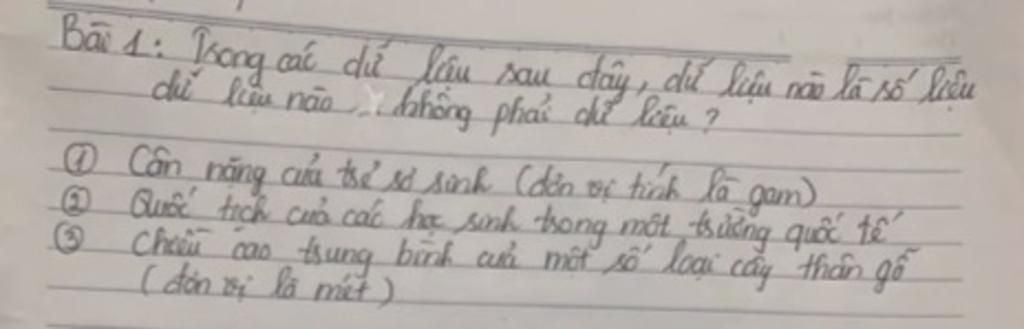 Bài 1: Trong các dữ liệu sau đây, dữ liệu nào là số liệu
dữ liệu nào không phải dữ liệu?
① Cân nặng của trẻ sơ sinh (đơn vị tính là gam)
② Quốc tịch của các học sinh trong một trường quốc tế
③ Chiều cao trung bình của một số loại cây thân gỗ
(đơn vị là mét)